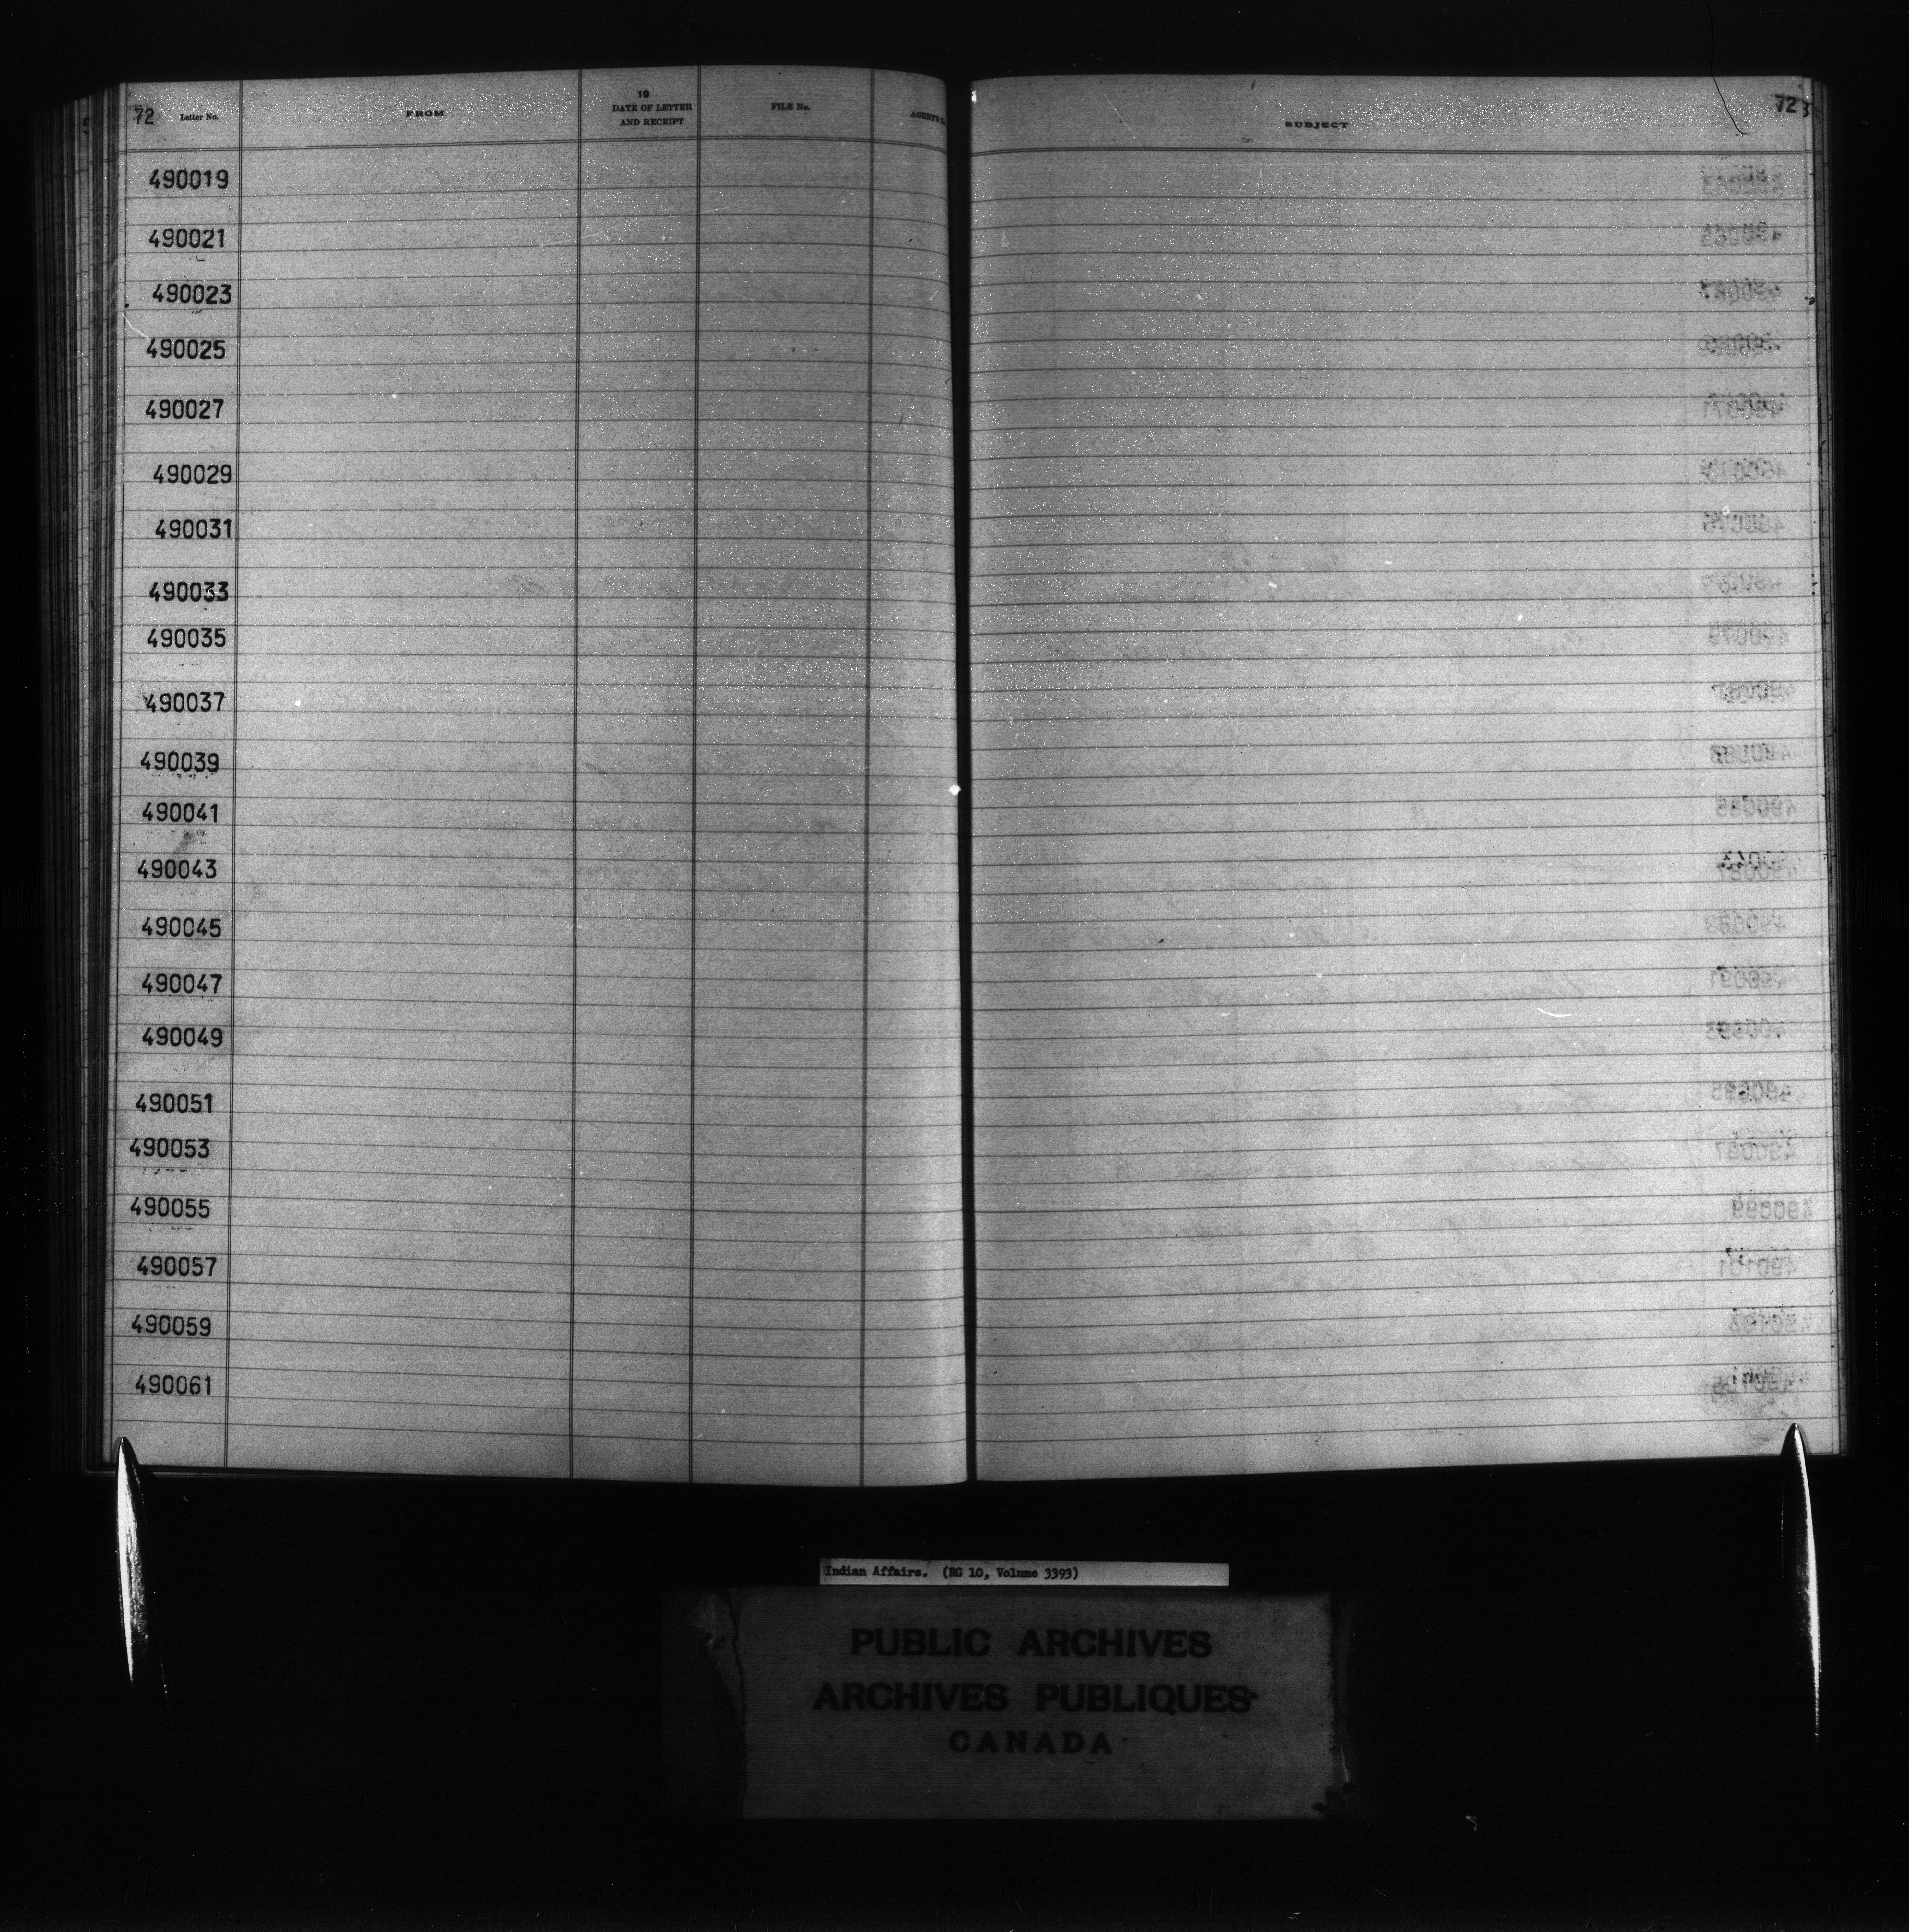 72 Letter No. FROM 19 DATE OF LETTER AND RECEIPT FILE No. SUBJECT 72
490019
490021
490023
490025
490027
490029
490031
490033
490035
490037
490039
490041
490043
490045
490047
490049
490051
490053
490055
490057
490059
490061
Indian Affairs. (RG 10, Volume 3393)
PUBLIC ARCHIVES
ARCHIVES PUBLIQUES
CANADA